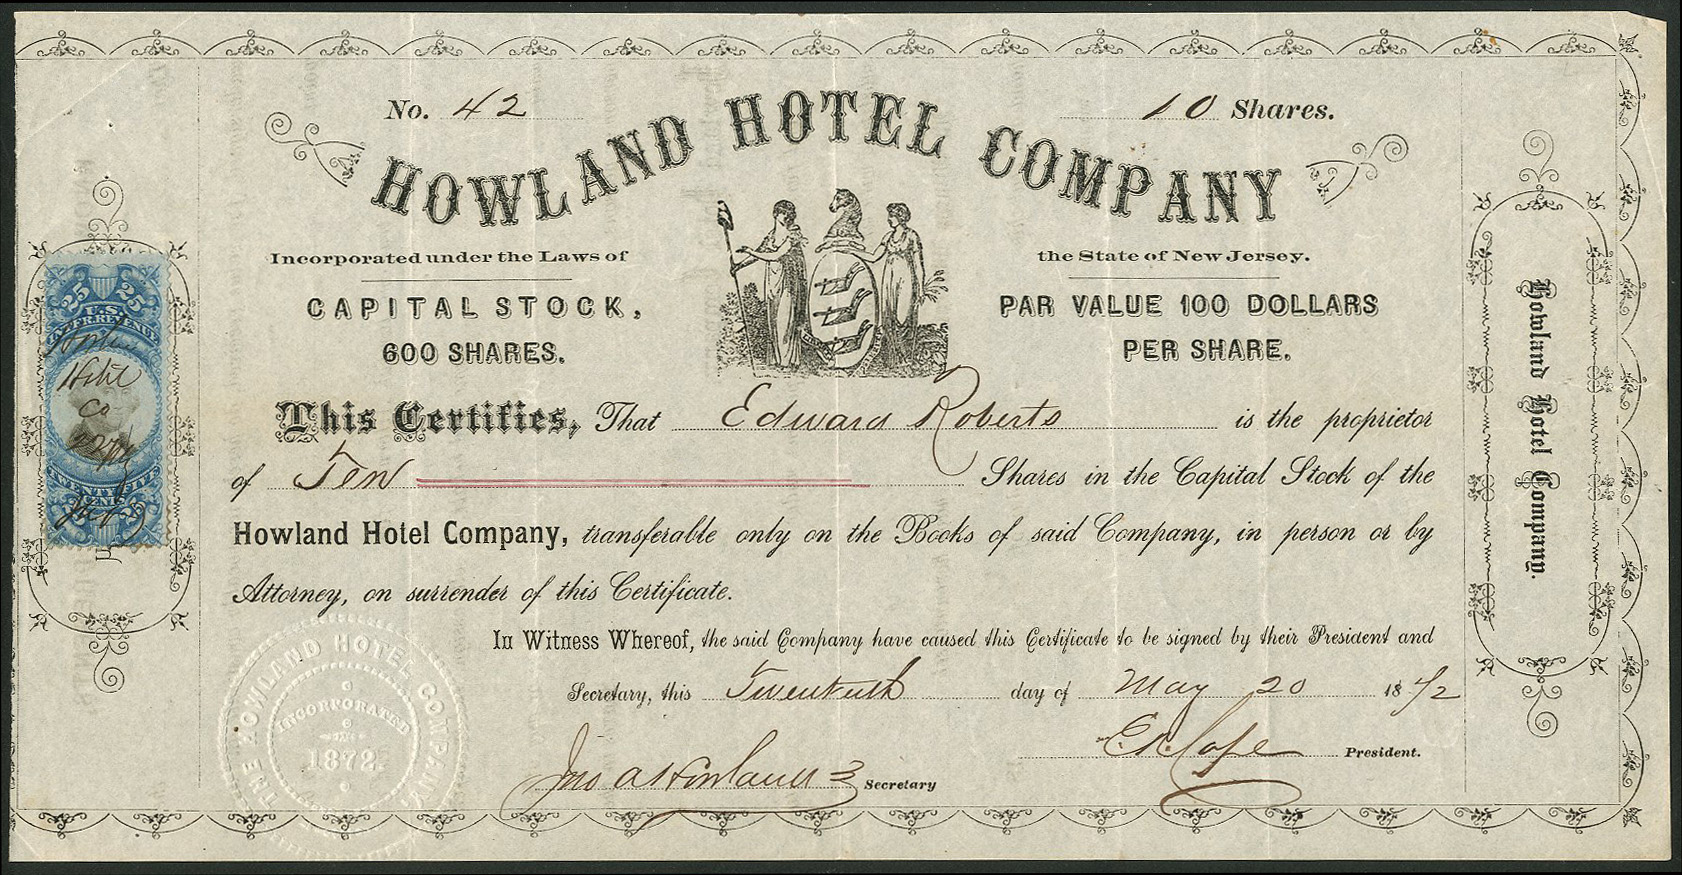 No. 42
10 Shares.
HOWLAND HOTEL COMPANY
Incorporated under the Laws of the State of New Jersey.
CAPITAL STOCK, PAR VALUE 100 DOLLARS
600 SHARES. PER SHARE.
This Certifies, That Edward Roberts is the proprietor
of Ten Shares in the Capital Stock of the
Howland Hotel Company, transferable only on the Books of said Company, in person or by
Attorney, on surrender of this Certificate.
In Witness Whereof, the said Company have caused this Certificate to be signed by their President and
Secretary, this Twentieth day of May 20 1872
President.
Secretary
THE HOWLAND HOTEL COMPANY.
INCORPORATED
1872.
25 25
U.S.
INTER. REVENUE
Hotel
Co
TWENTY FIVE
CENTS
25 25
Howland Hotel Company.